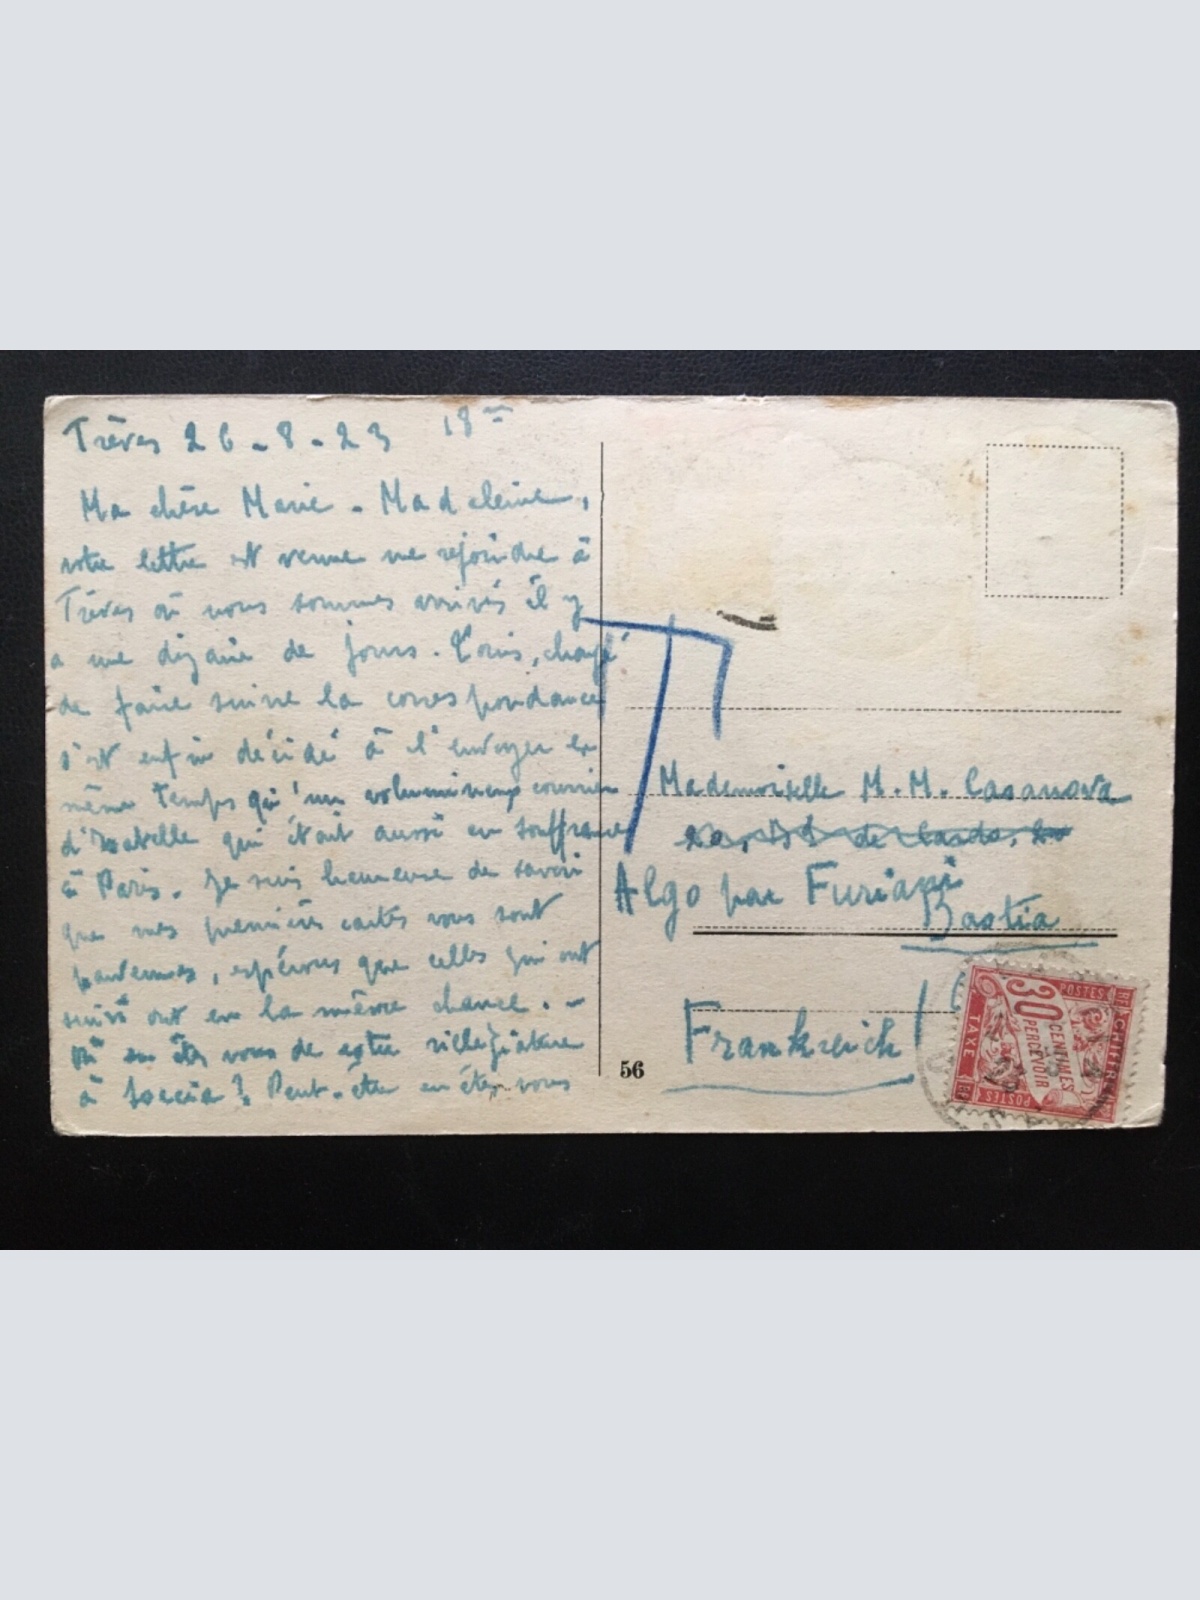 Trèves 26-8-23 18
Ma chère Marie-Madeleine,
votre lettre est venue me rejoindre à
Trèves où nous sommes arrivés il y
a une dizaine de jours. Louis, chargé
de faire suivre la correspondance
s'est enfin décidé à l'envoyer en
même temps qu'un volumineux courrier
d'Isabelle qui était aussi en souffrance
à Paris. Je suis heureuse de savoir
que mes premières cartes vous sont
parvenues, espérons que celles qui ont
suivi ont eu la même chance. -
Où en êtes vous de votre villégiature
à Soccia? Peut-être en êtes vous
T
Mademoiselle M.M. Casanova
de
Algo par Furiani
Bastia
Frankreich
56
30
CENTIMES
PERCEVOIR
POSTES
CHIFFRE
TAXE
POSTES